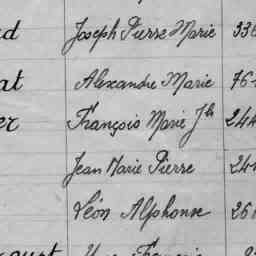 Joseph Pierre Marie 336
at Alexandre Marie 764
er François Marie Jh 244
Jean Marie Pierre 244
Léon Alphonse 26